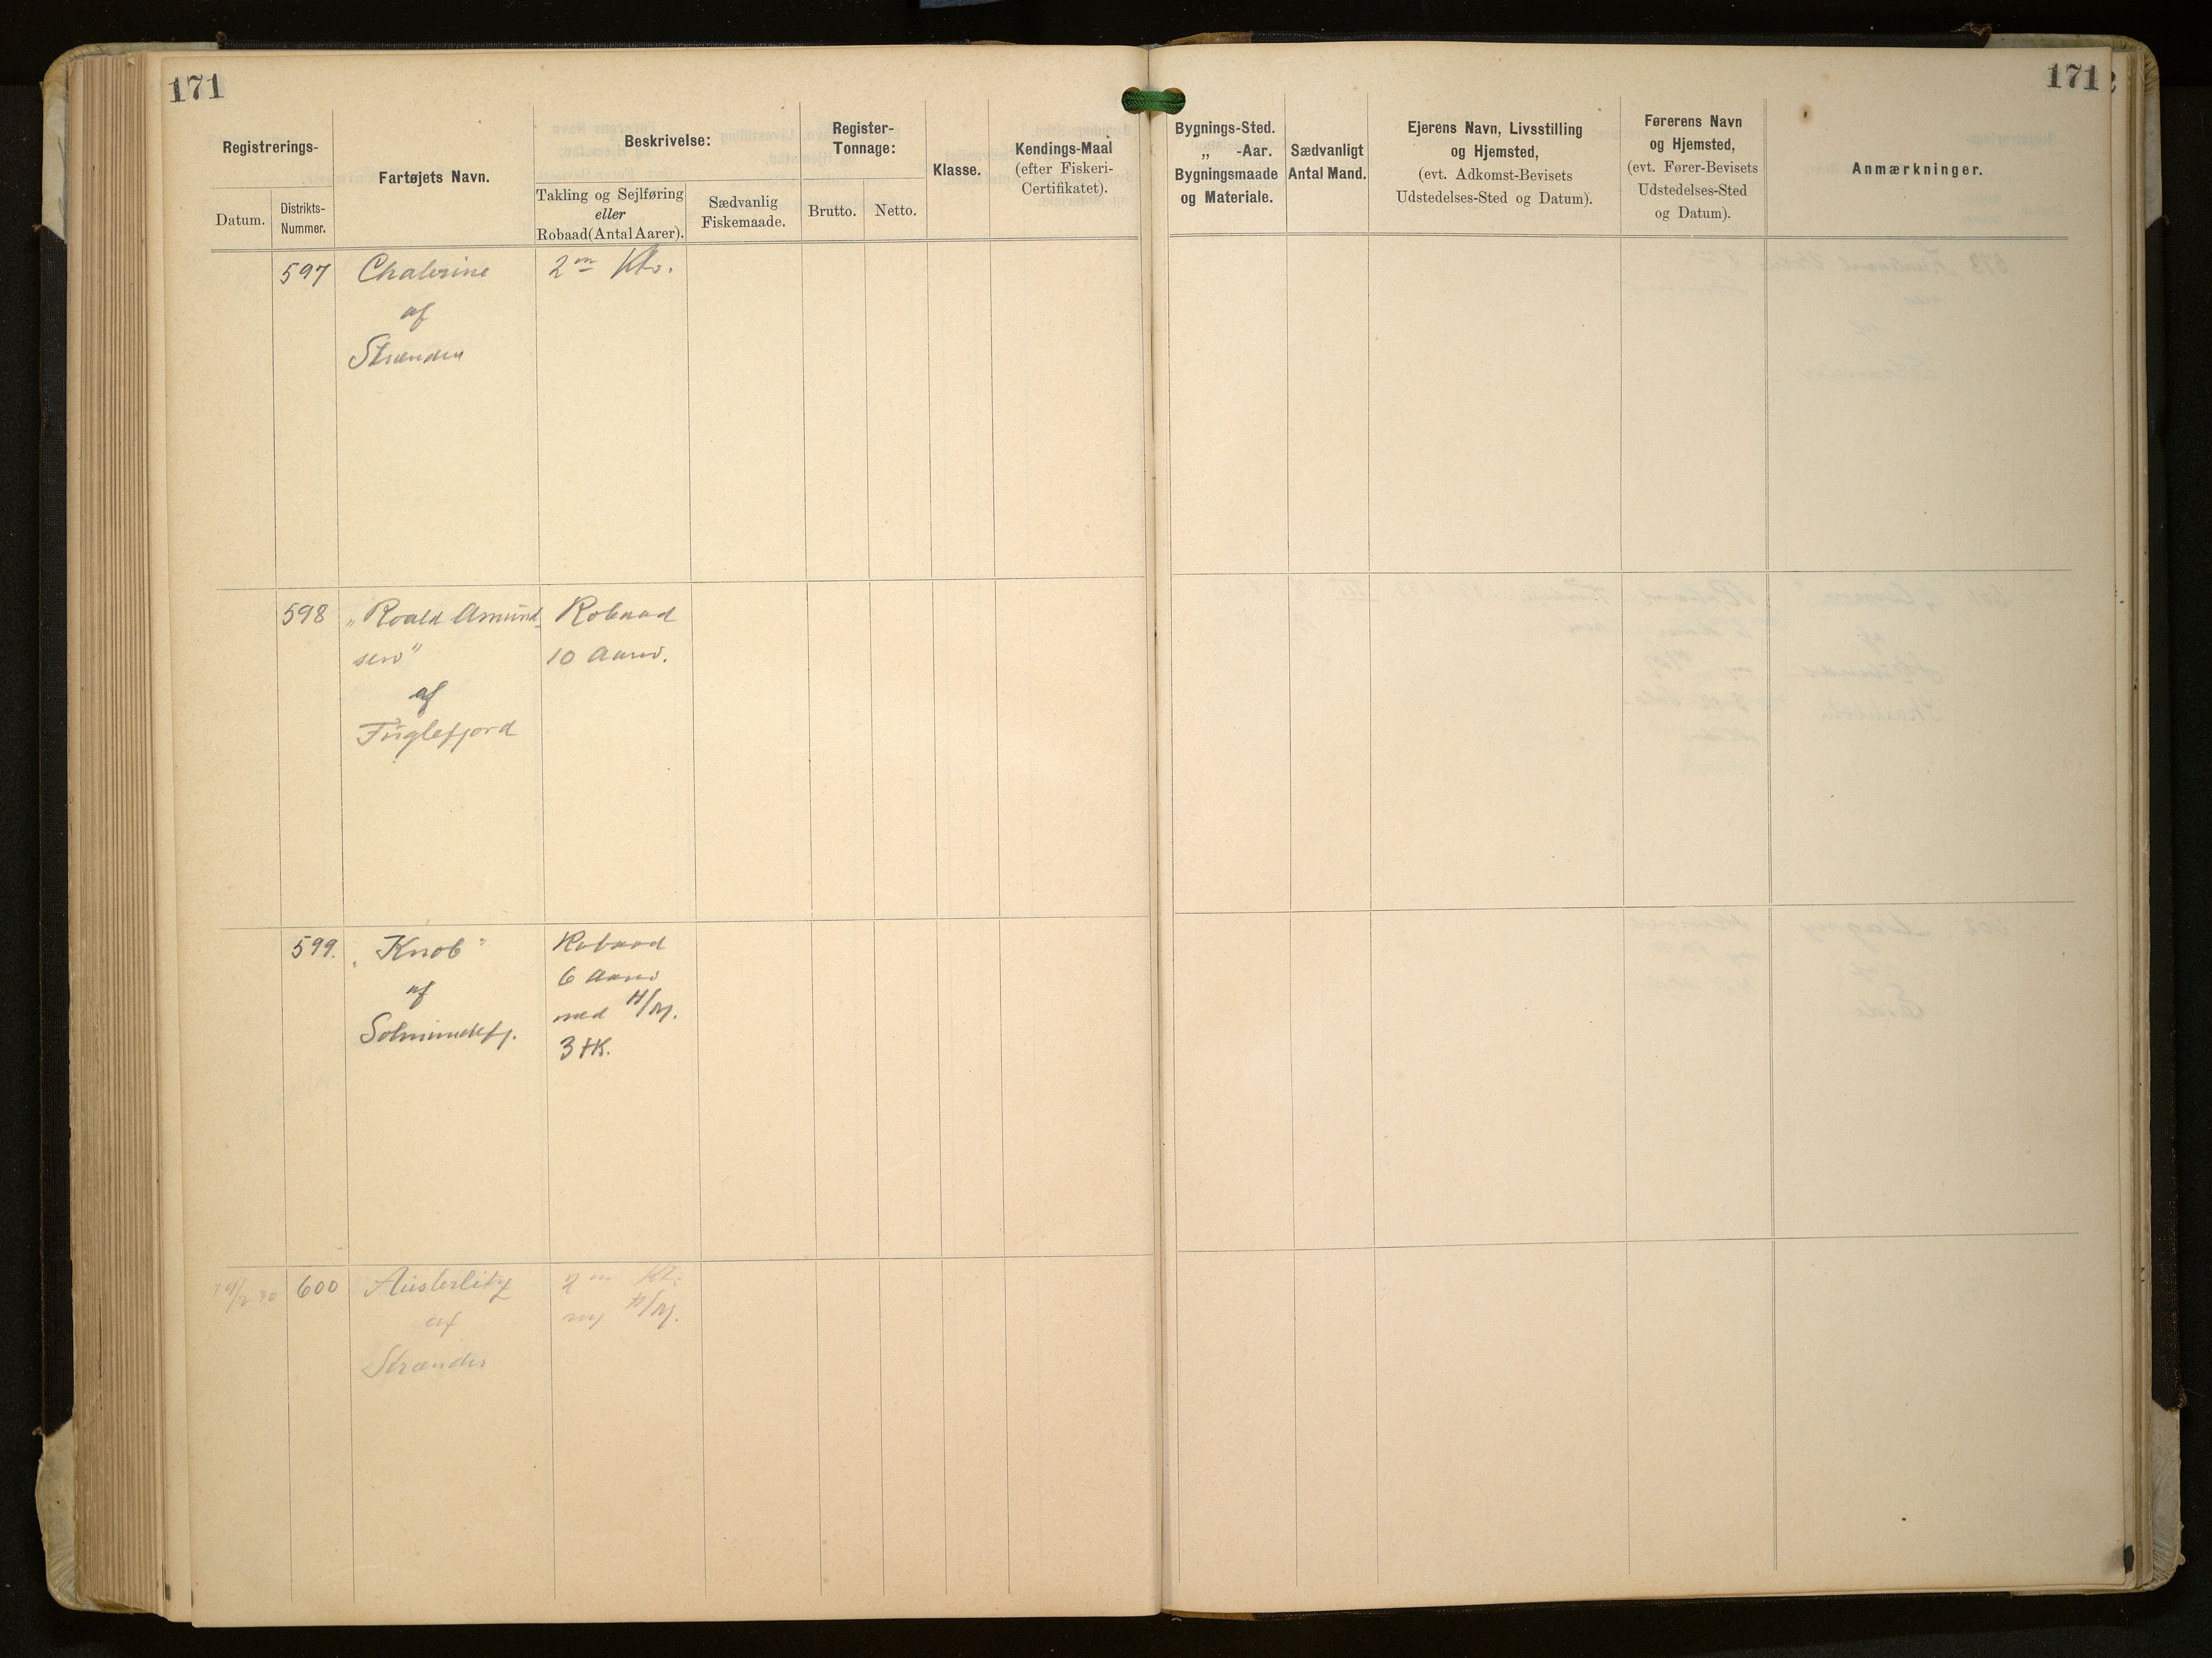 171
171
Registrerings-
Datum.
Distrikts-
Nummer.
Fartøjets Navn.
Beskrivelse:
Takling og Sejlføring
eller
Robaad (Antal Aarer).
Sædvanlig
Fiskemaade.
Register-
Tonnage:
Brutto.
Netto.
Klasse.
Kendings-Maal
(efter Fiskeri-
Certifikatet).
Bygnings-Sted.
„ -Aar.
Bygningsmaade
og Materiale.
Sædvanligt
Antal Mand.
Ejerens Navn, Livsstilling
og Hjemsted,
(evt. Adkomst-Bevisets
Udstedelses-Sted og Datum).
Førerens Navn
og Hjemsted,
(evt. Fører-Bevisets
Udstedelses-Sted
og Datum).
Anmærkninger.
597
af
Strænder
2 m Kt.
598
„Roald Amund-
sen"
af
Fuglefjord
Robaad
10 Aarer.
599.
„Knob"
af
Solmundefj.
Robaad
6 Aarer
med H/M.
3 HK.
600
Austerlitz
af
Strænder
2 m Kt.
m/ H/M.